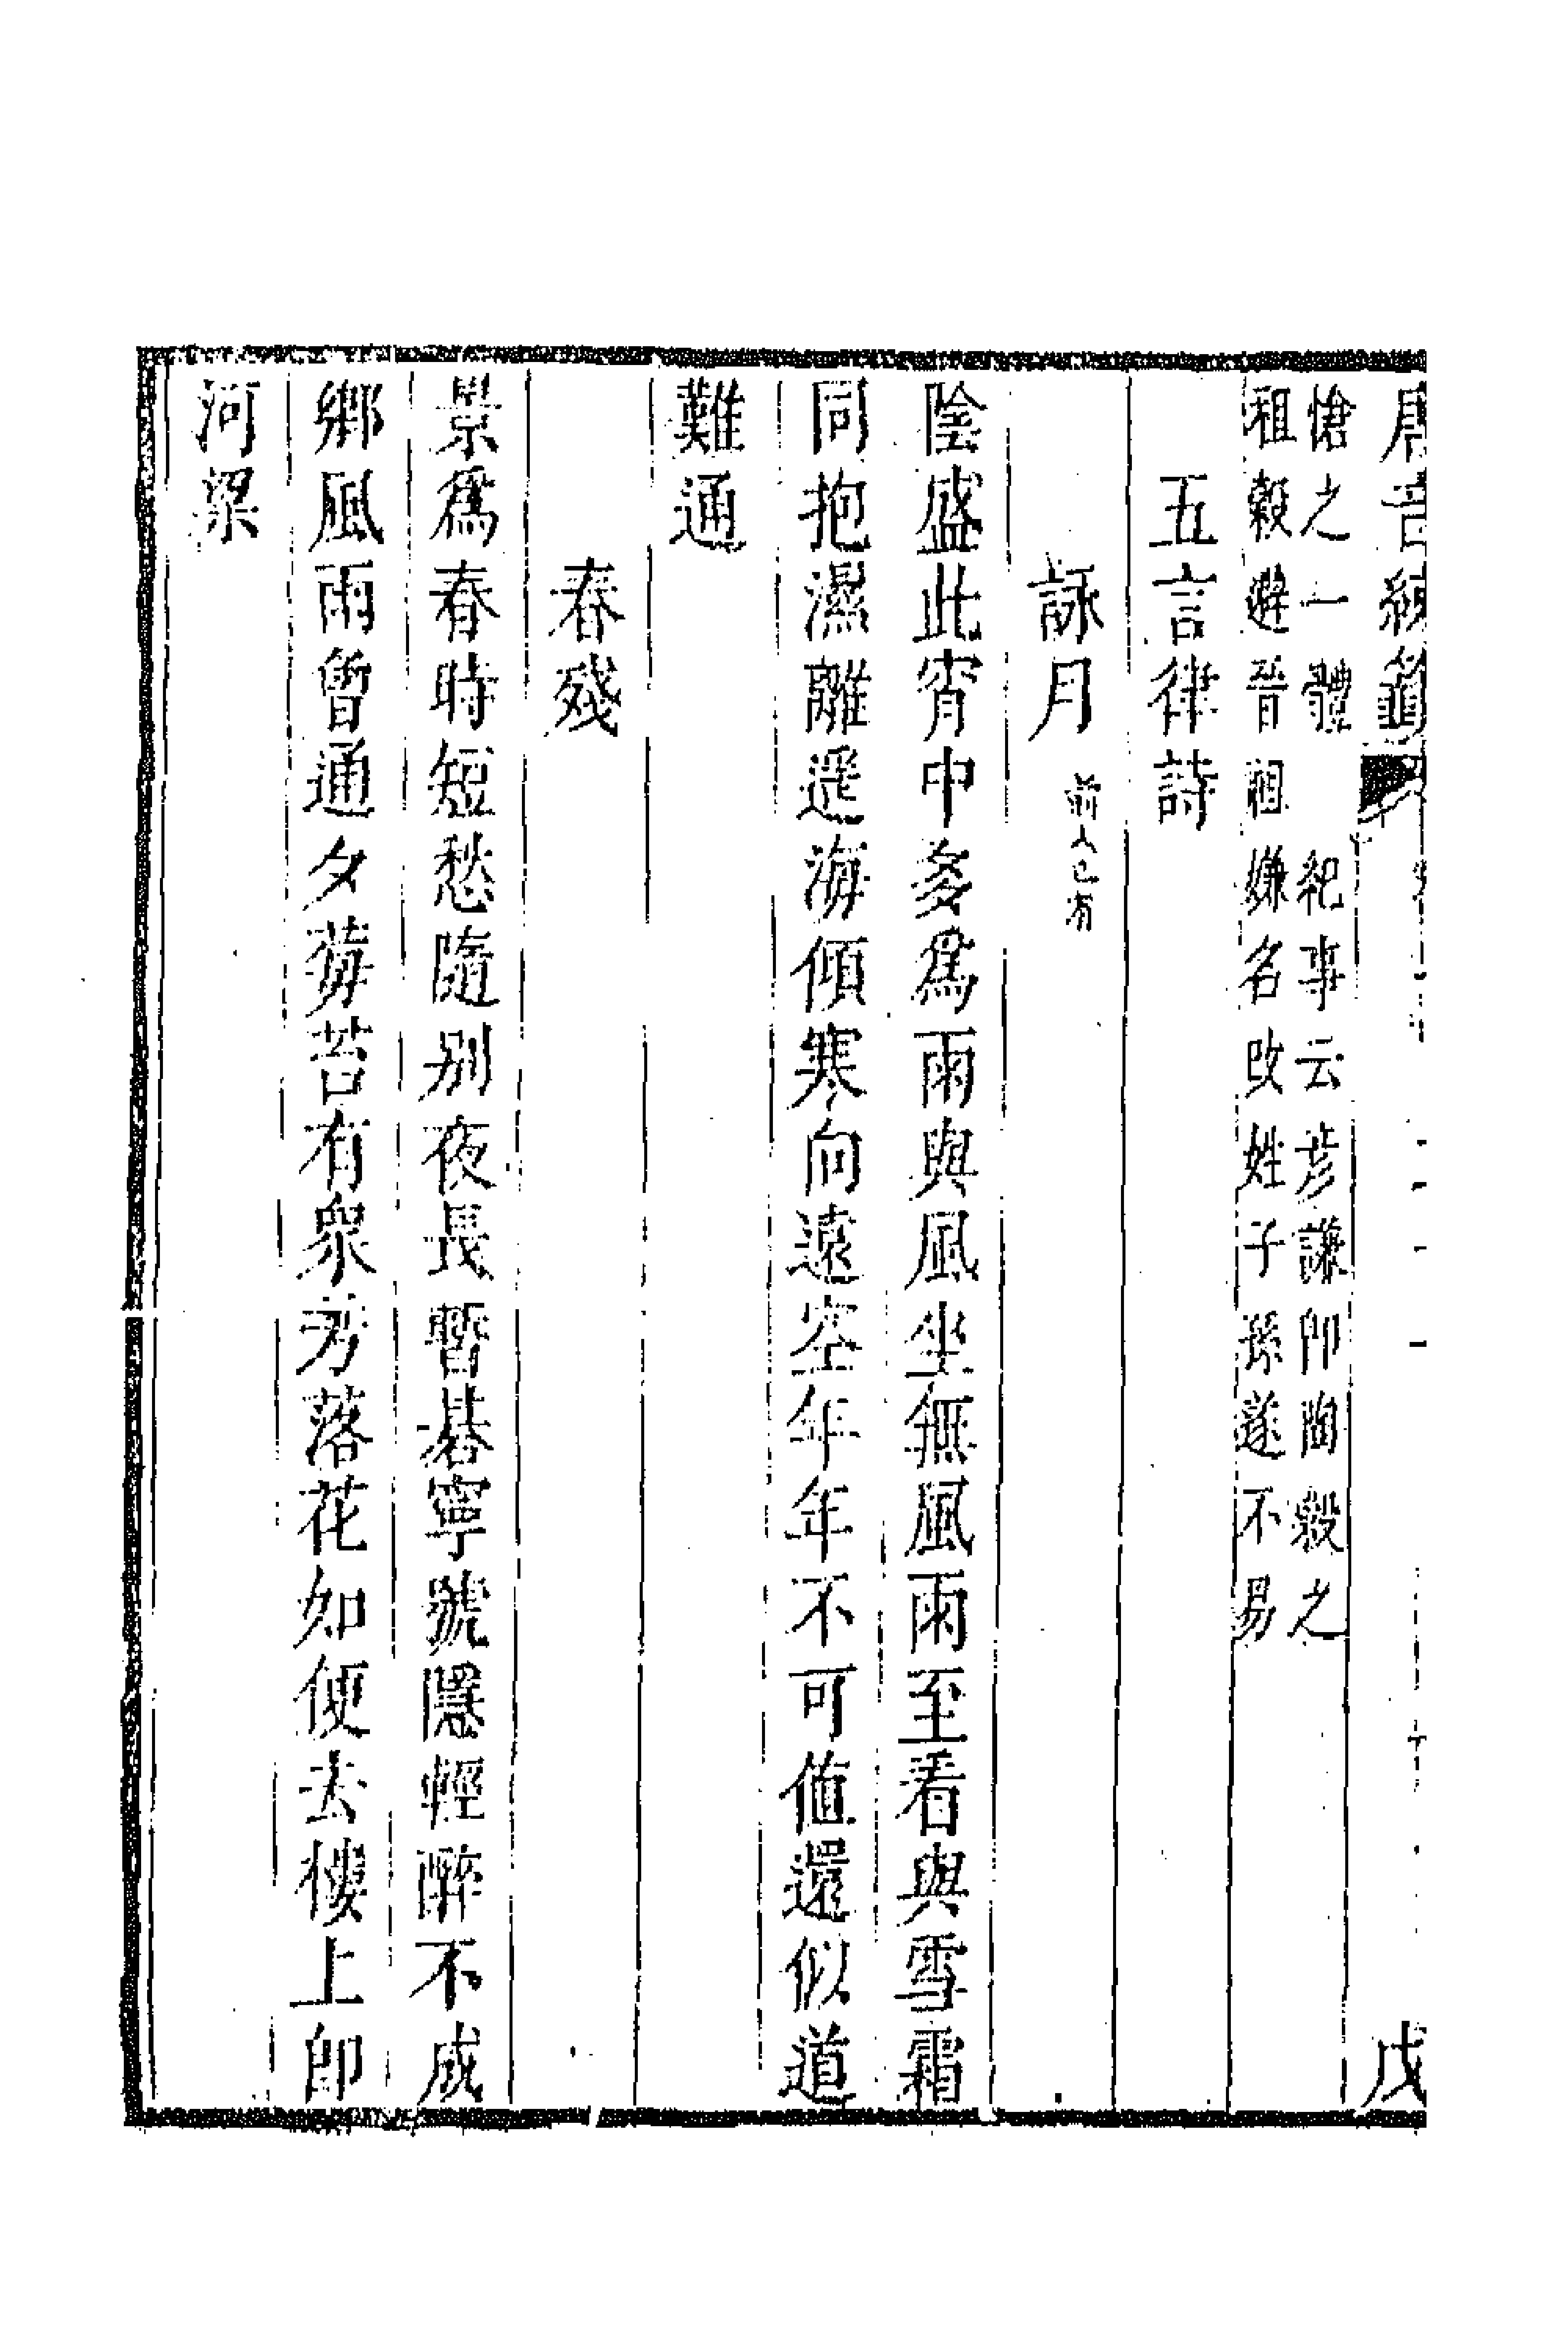 唐音統籤 戊
愴之一體 紀事云彥謙卽陶穀之
祖穀避晉祖嫌名改姓子孫遂不易
五言律詩
詠月 前人已有
陰盛此宵中多爲雨與風坐無風雨至看與雪霜
同抱濕離遥海傾寒向遠空年年不可值還似道
難通
春殘
景爲春時短愁隨别夜長暫碁寧號隱輕醉不成
鄉風雨曾通夕莓苔有衆芳落花如便去樓上卽
河梁